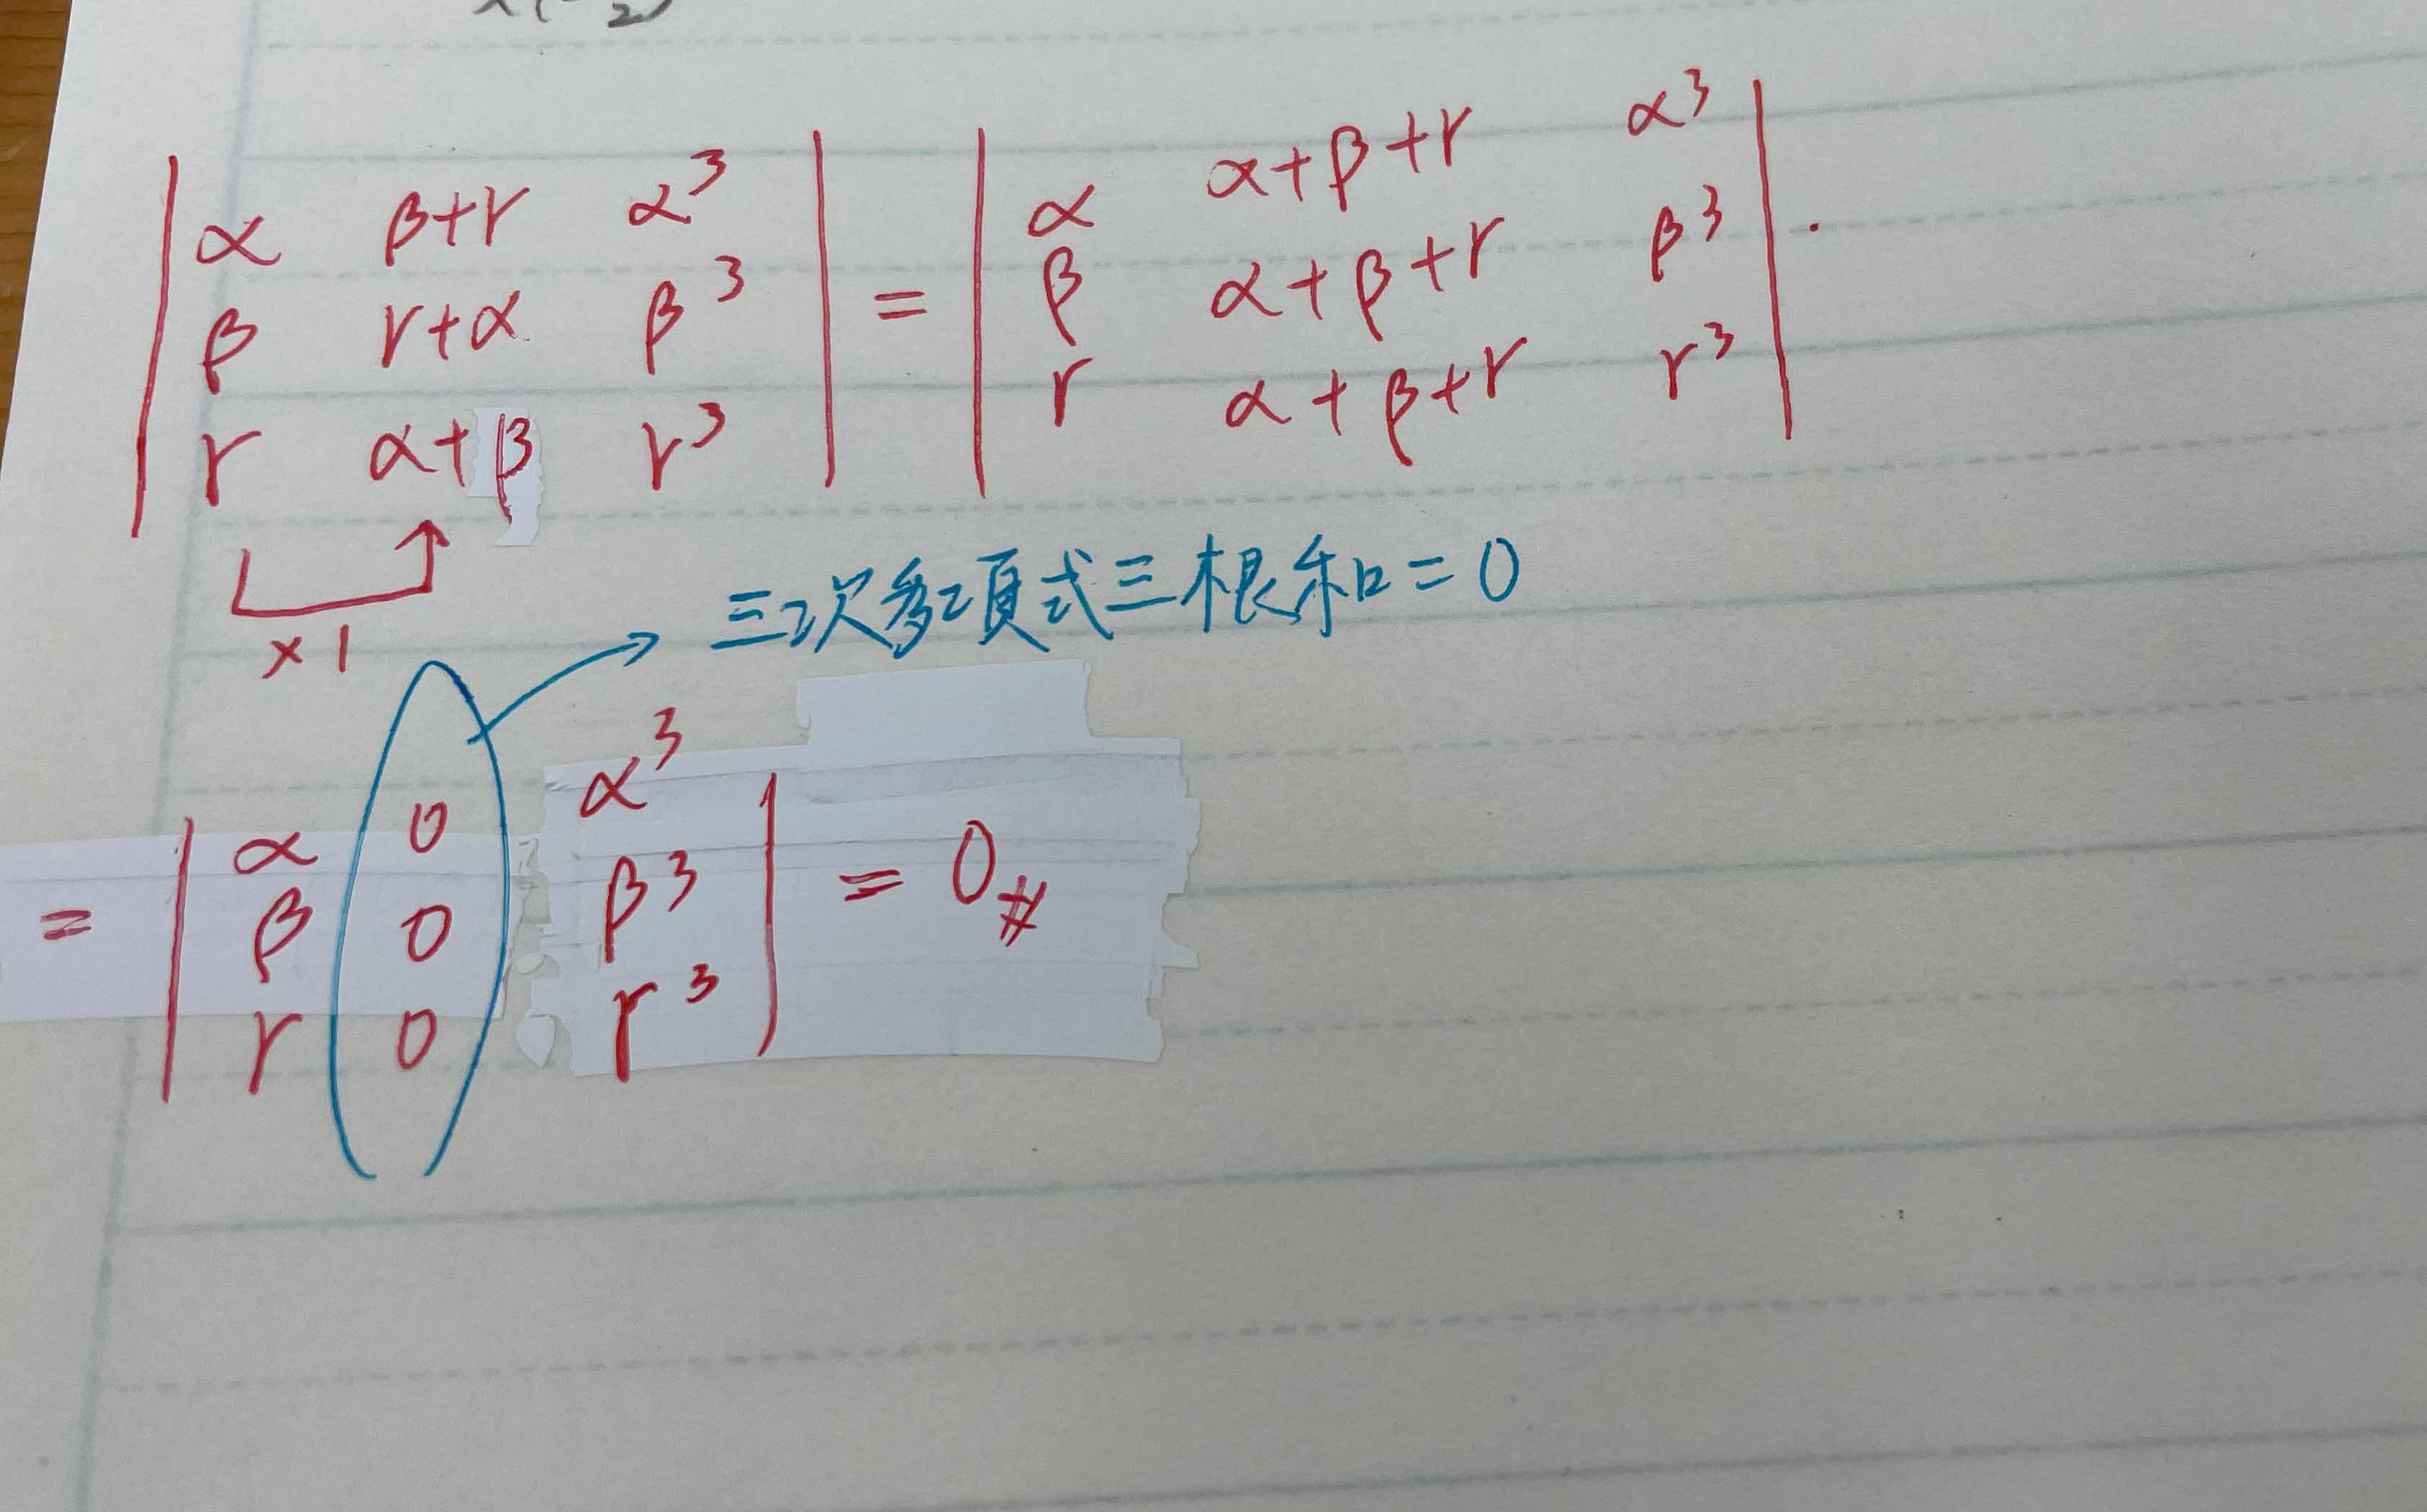 | α β+r α³ | = | α α+β+r α³ | .
| β r+α β³ | | β α+β+r β³ |
| r α+β r³ | | r α+β+r r³ |
×1
三次多項式三根和=0
= | α 0 α³ | = 0#
| β 0 β³ |
| r 0 r³ |